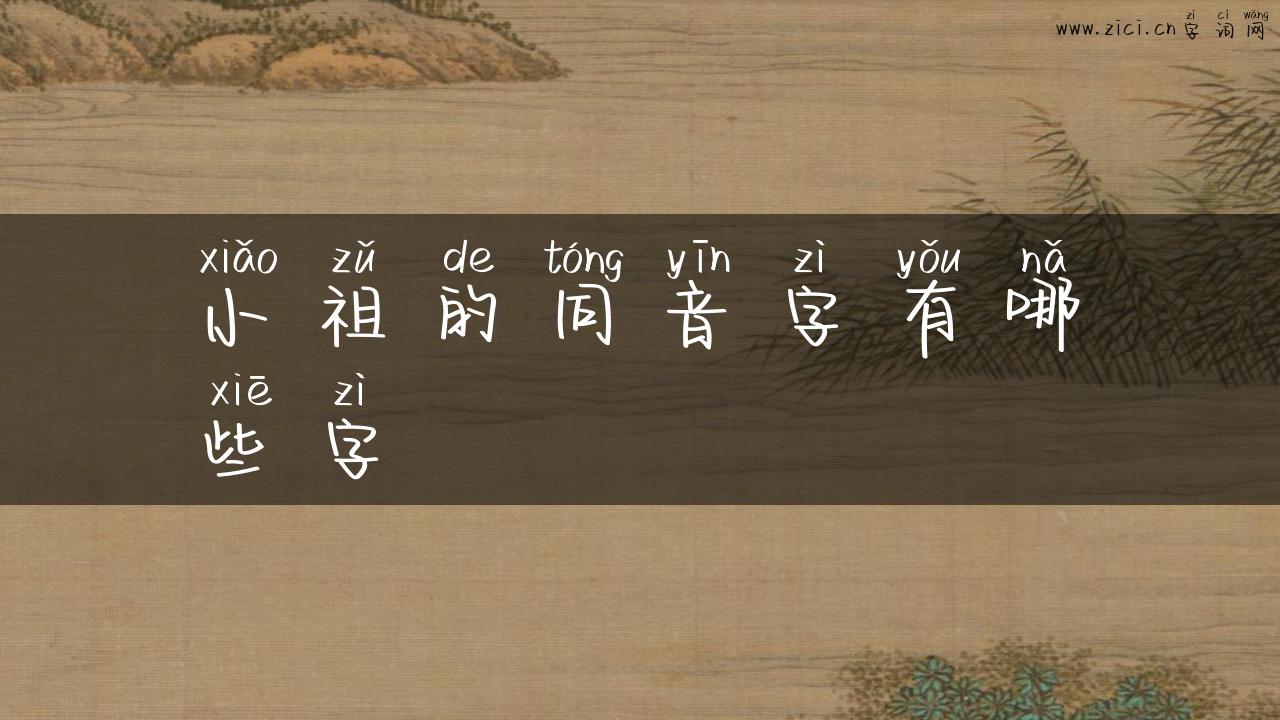 zì cí wǎng
www.zici.cn字词网
xiǎo zǔ de tóng yīn zì yǒu nǎ
小祖的同音字有哪
xiē zì
些字